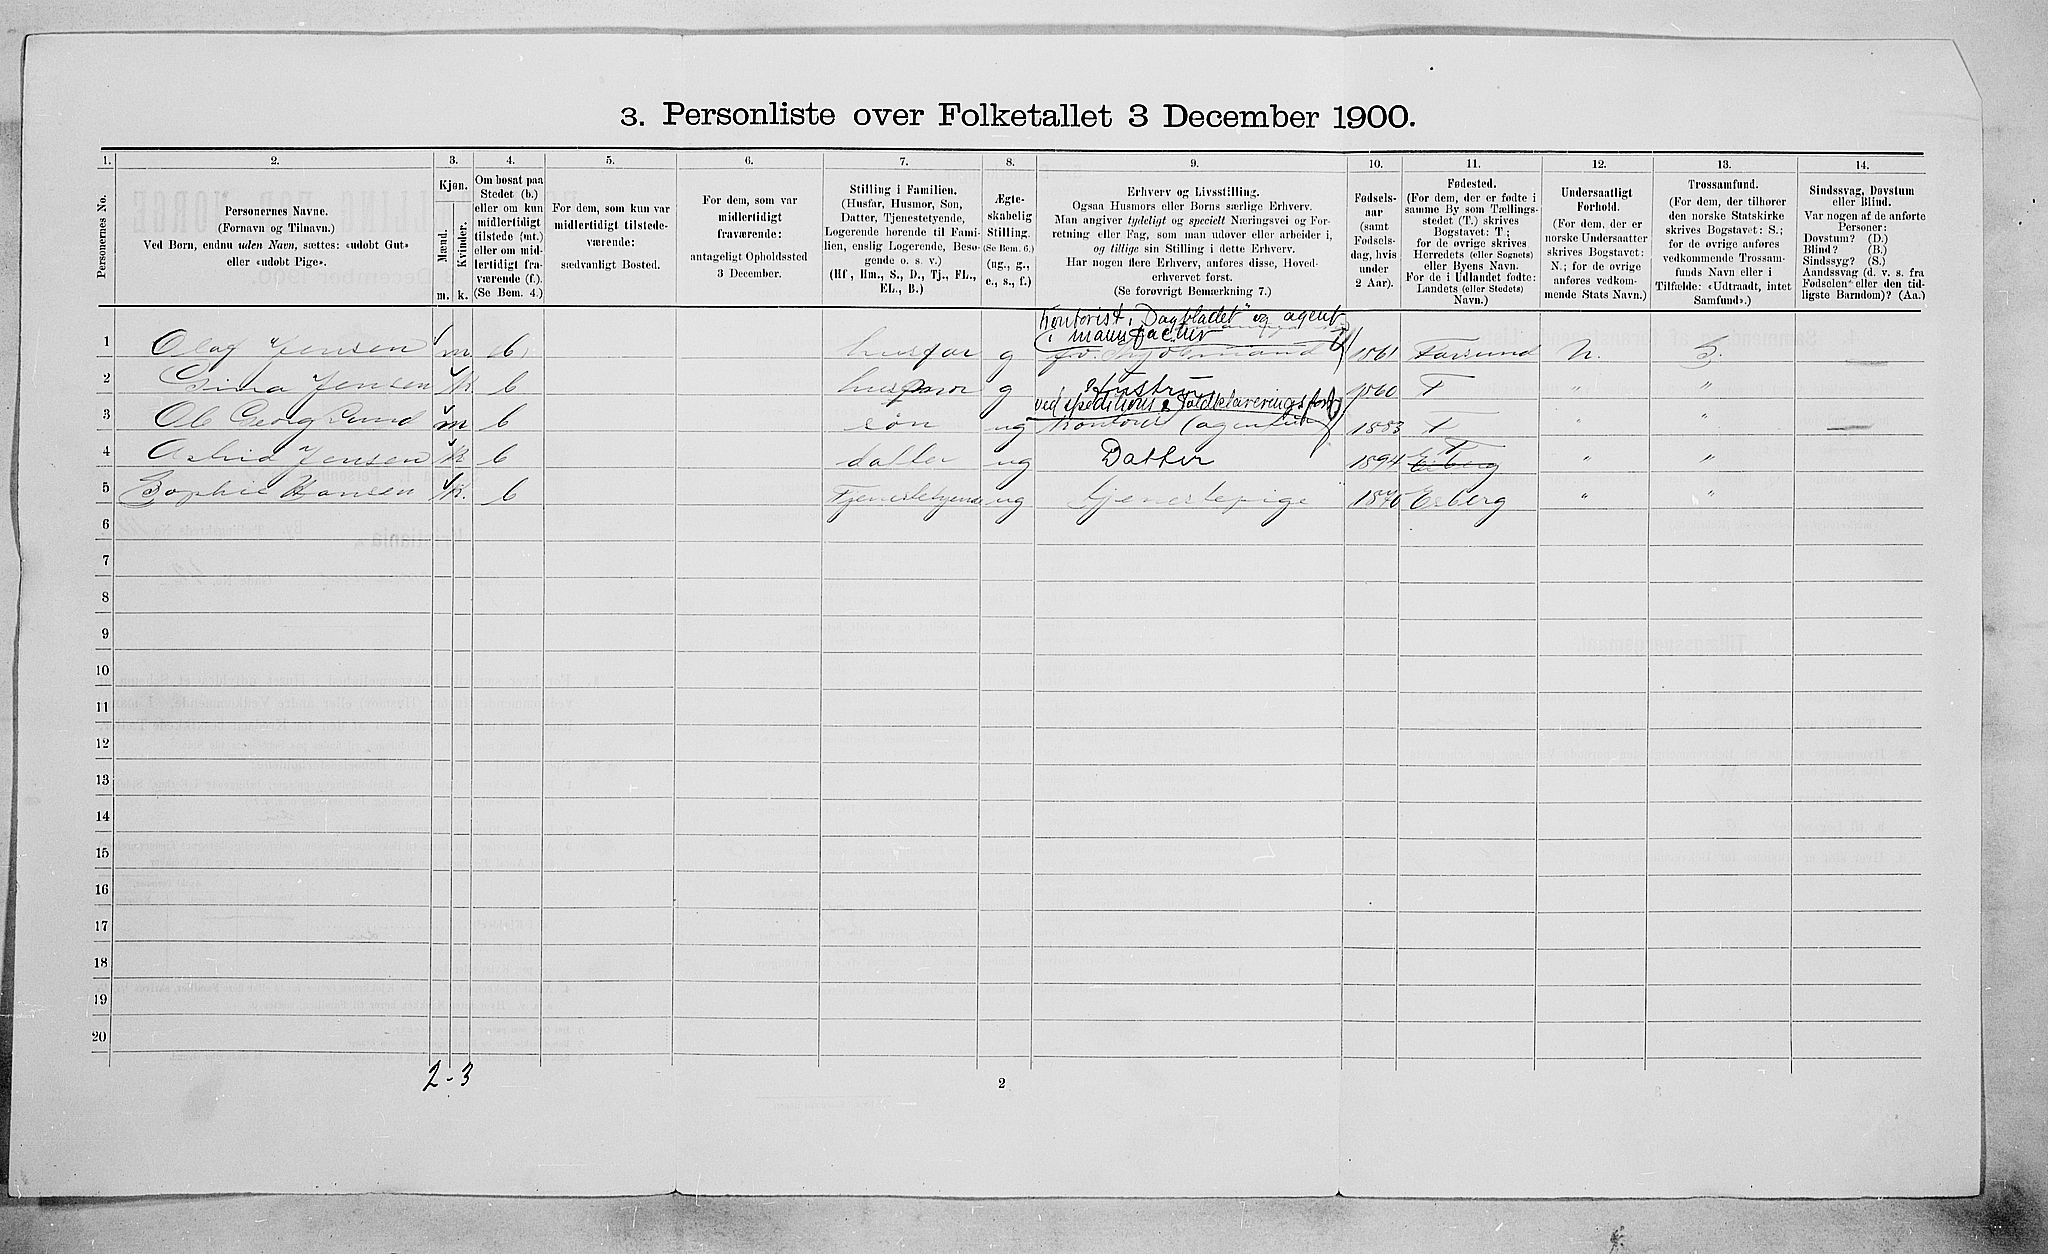 3. Personliste over Folketallet 3 December 1900.
1. 2. 3. 4. 5. 6. 7. 8. 9. 10. 11. 12. 13. 14.
Personernes No.
Personernes Navne.
(Fornavn og Tilnavn.)
Ved Børn, endnu uden Navn, sættes: «udøbt Gut»
eller «udøbt Pige».
Kjøn.
Mænd.
Kvinder.
m. k.
Om bosat paa
Stedet (b.)
eller om kun
midlertidigt
tilstede (mt.)
eller om mid-
lertidigt fra-
værende (f.).
(Se Bem. 4.)
For dem, som kun var
midlertidigt tilstede-
værende:
sædvanligt Bosted.
For dem, som var
midlertidigt
fraværende:
antageligt Opholdssted
3 December.
Stilling i Familien.
(Husfar, Husmor, Søn,
Datter, Tjenestetyende,
Logerende hørende til Fami-
lien, enslig Logerende, Besø-
gende o. s. v.)
(Hf, Hm., S., D., Tj., FL.,
EL., B.)
Ægte-
skabelig
Stilling.
(Se Bem. 6.)
(ug., g.,
e., s., f.)
Erhverv og Livsstilling.
Ogsaa Husmors eller Børns særlige Erhverv.
Man angiver tydeligt og specielt Næringsvei og For-
retning eller Fag, som man udøver eller arbeider i,
og tillige sin Stilling i dette Erhverv.
Har nogen flere Erhverv, anføres disse, Hoved-
erhvervet først.
(Se forøvrigt Bemærkning 7.)
Fødsels-
aar
(samt
Fødsels-
dag, hvis
under
2 Aar).
Fødested.
(For dem, der er fødte i
samme By som Tællings-
stedet (T.) skrives
Bogstavet: T;
for de øvrige skrives
Herredets (eller Sognets)
eller Byens Navn.
For de i Udlandet fødte:
Landets (eller Stedets)
Navn.)
Undersaatligt
Forhold.
(For dem, der er
norske Undersaatter
skrives Bogstavet:
N.; for de øvrige
anføres vedkom-
mende Stats Navn.)
Trossamfund.
(For dem, der tilhører
den norske Statskirke
skrives Bogstavet: S.;
for de øvrige anføres
vedkommende Trossam-
funds Navn eller i
Tilfælde: «Udtraadt, intet
Samfund».)
Sindssvag, Døvstum
eller Blind.
Var nogen af de anførte
Personer:
Døvstum? (D.)
Blind? (B.)
Sindssyg? (S.)
Aandssvag (d. v. s. fra
Fødselen eller den tid-
ligste Barndom)? (Aa.)
Kontorist i "Dagbladet" og agent
i manufactur
1 Olaf Jensen m b husfar g 1861 Farsund N. S.
2 Gina Jensen k b husmor g Hustru 1860 T " "
ved speditions &
3 Ole Georg Lund m b søn ug Kontorist 1883 T " "
4 Astrid Jensen k b datter ug Datter 1894 T " "
5 Sophie Hansen k. b Tjenestetyende ug tjenestepige 1875 Esberg " "
6
7
8
9
10
11
12
13
14
15
16
17
18
19
20
2-3
2